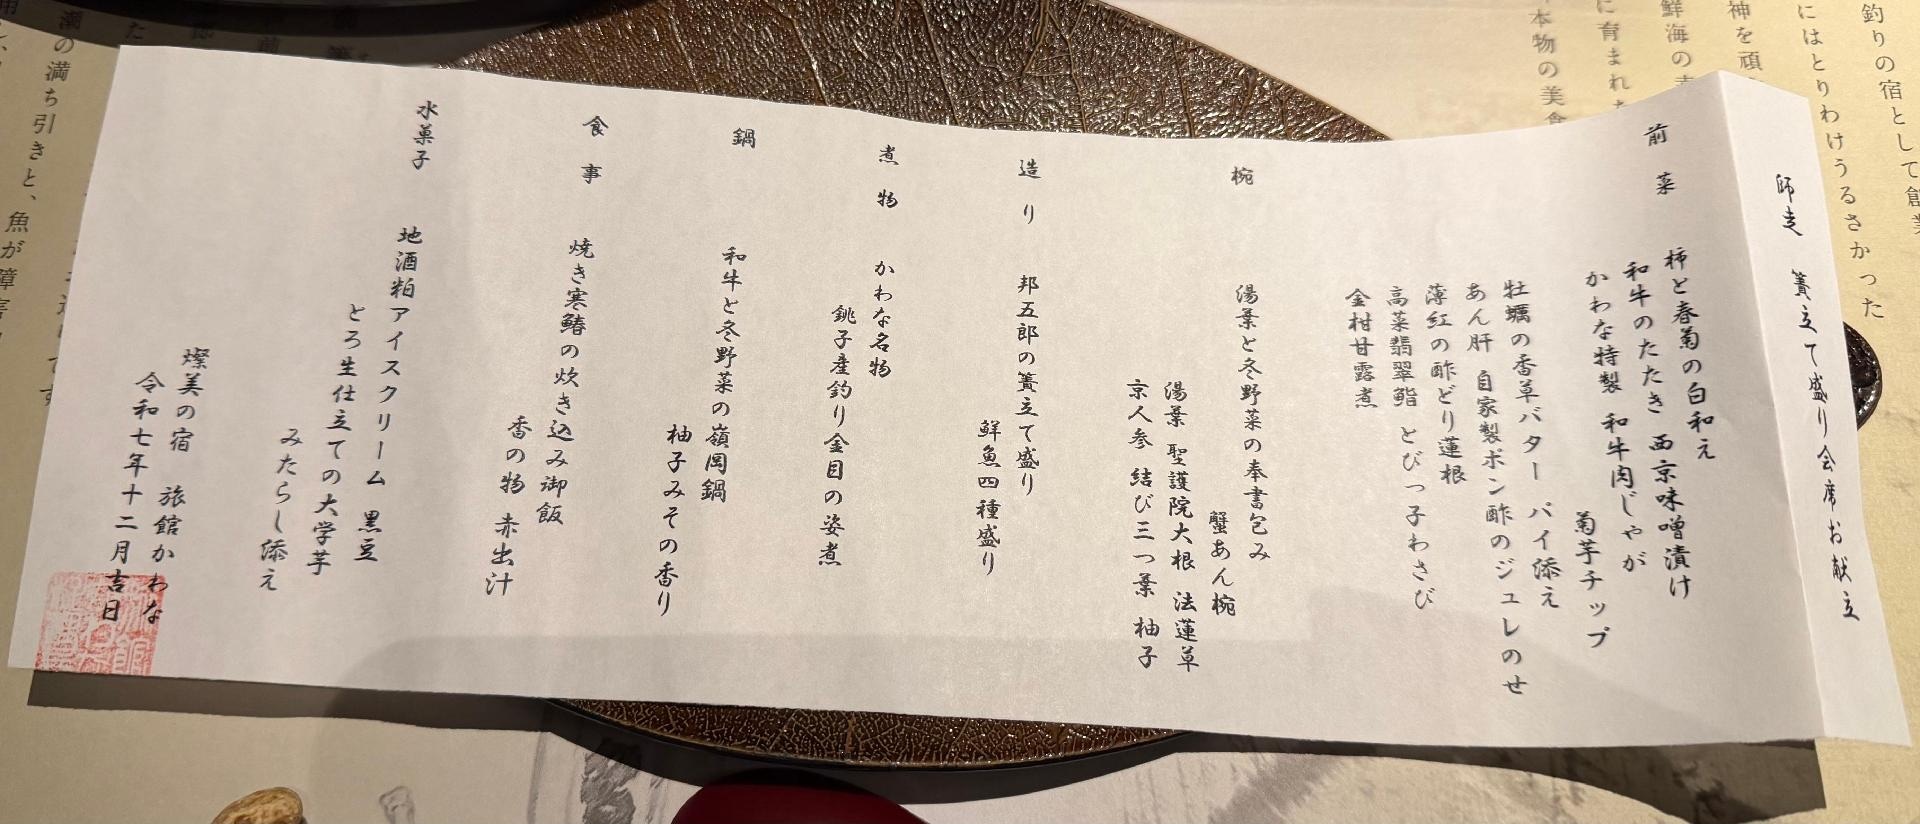 師走 簀立て盛り会席お献立
前菜
柿と春菊の白和え
和牛のたたき 西京味噌漬け
かわな特製 和牛肉じゃが
菊芋チップ
牡蠣の香草バター パイ添え
あん肝 自家製ポン酢のジュレのせ
薄紅の酢どり蓮根
高菜翡翠鮨 とびっ子わさび
金柑甘露煮
椀
湯葉と冬野菜の奉書包み
蟹あん椀
湯葉 聖護院大根 法蓮草
京人参 結び三つ葉 柚子
造り
邦五郎の簀立て盛り
鮮魚四種盛り
煮物
かわな名物
銚子産釣り金目の姿煮
鍋
和牛と冬野菜の嶺岡鍋
柚子みその香り
食事
焼き寒鰆の炊き込み御飯
香の物 赤出汁
水菓子
地酒粕アイスクリーム 黒豆
とろ生仕立ての大学芋
みたらし添え
燦美の宿 旅館かわな
令和七年十二月吉日
釣りの宿として創業
にはとりわけうるさかった
神を頑
鮮海の幸
に育まれた
本物の美食
潮の満ち引きと、魚が障害